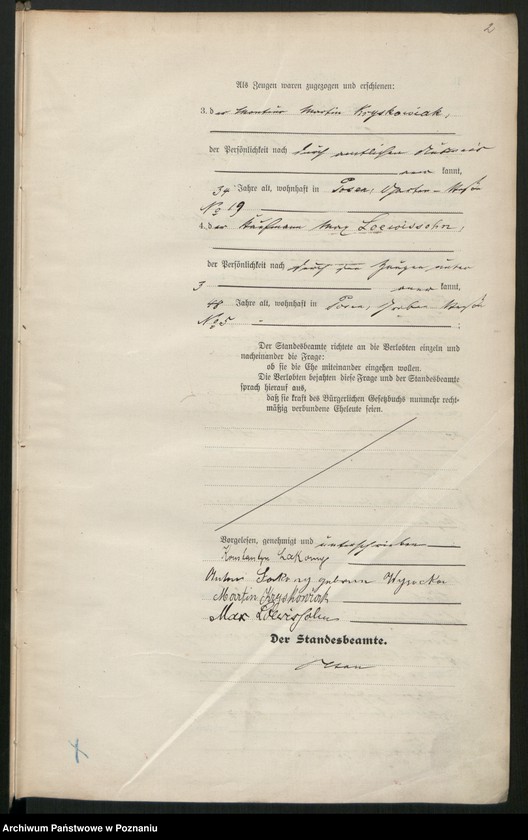 2
Als Zeugen waren zugezogen und erschienen:
3. der Monteur Martin Kryskowiak,
der Persönlichkeit nach durch amtlichen
kannt,
34 Jahre alt, wohnhaft in Posen,
No 19
4. der Kaufmann Max Loewissohn,
der Persönlichkeit nach durch den Zeugen unter
3 kannt,
48 Jahre alt, wohnhaft in Posen,
No 5 ;
Der Standesbeamte richtete an die Verlobten einzeln und
nacheinander die Frage:
ob sie die Ehe miteinander eingehen wollen.
Die Verlobten bejahten diese Frage und der Standesbeamte
sprach hierauf aus,
daß sie kraft des Bürgerlichen Gesetzbuchs nunmehr recht-
mäßig verbundene Eheleute seien.
Vorgelesen, genehmigt und unterschrieben
Konstantyn
geboren Wysocka
Martin Kryskowiak
Max Loewissohn
Der Standesbeamte.
Archiwum Państwowe w Poznaniu